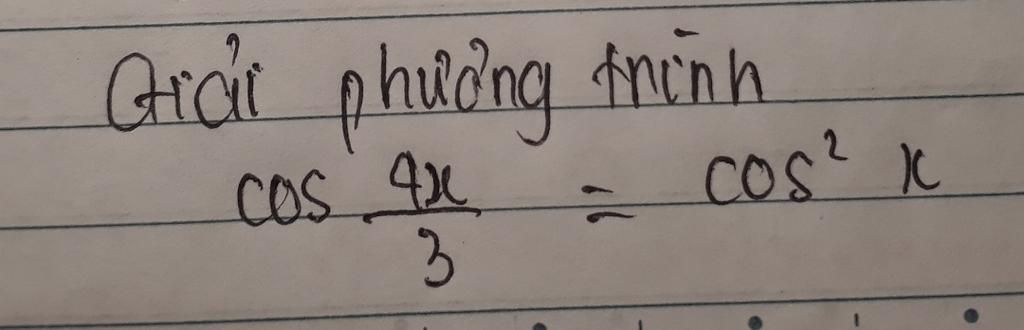 Giải phương trình
cos 4x/3 = cos² x